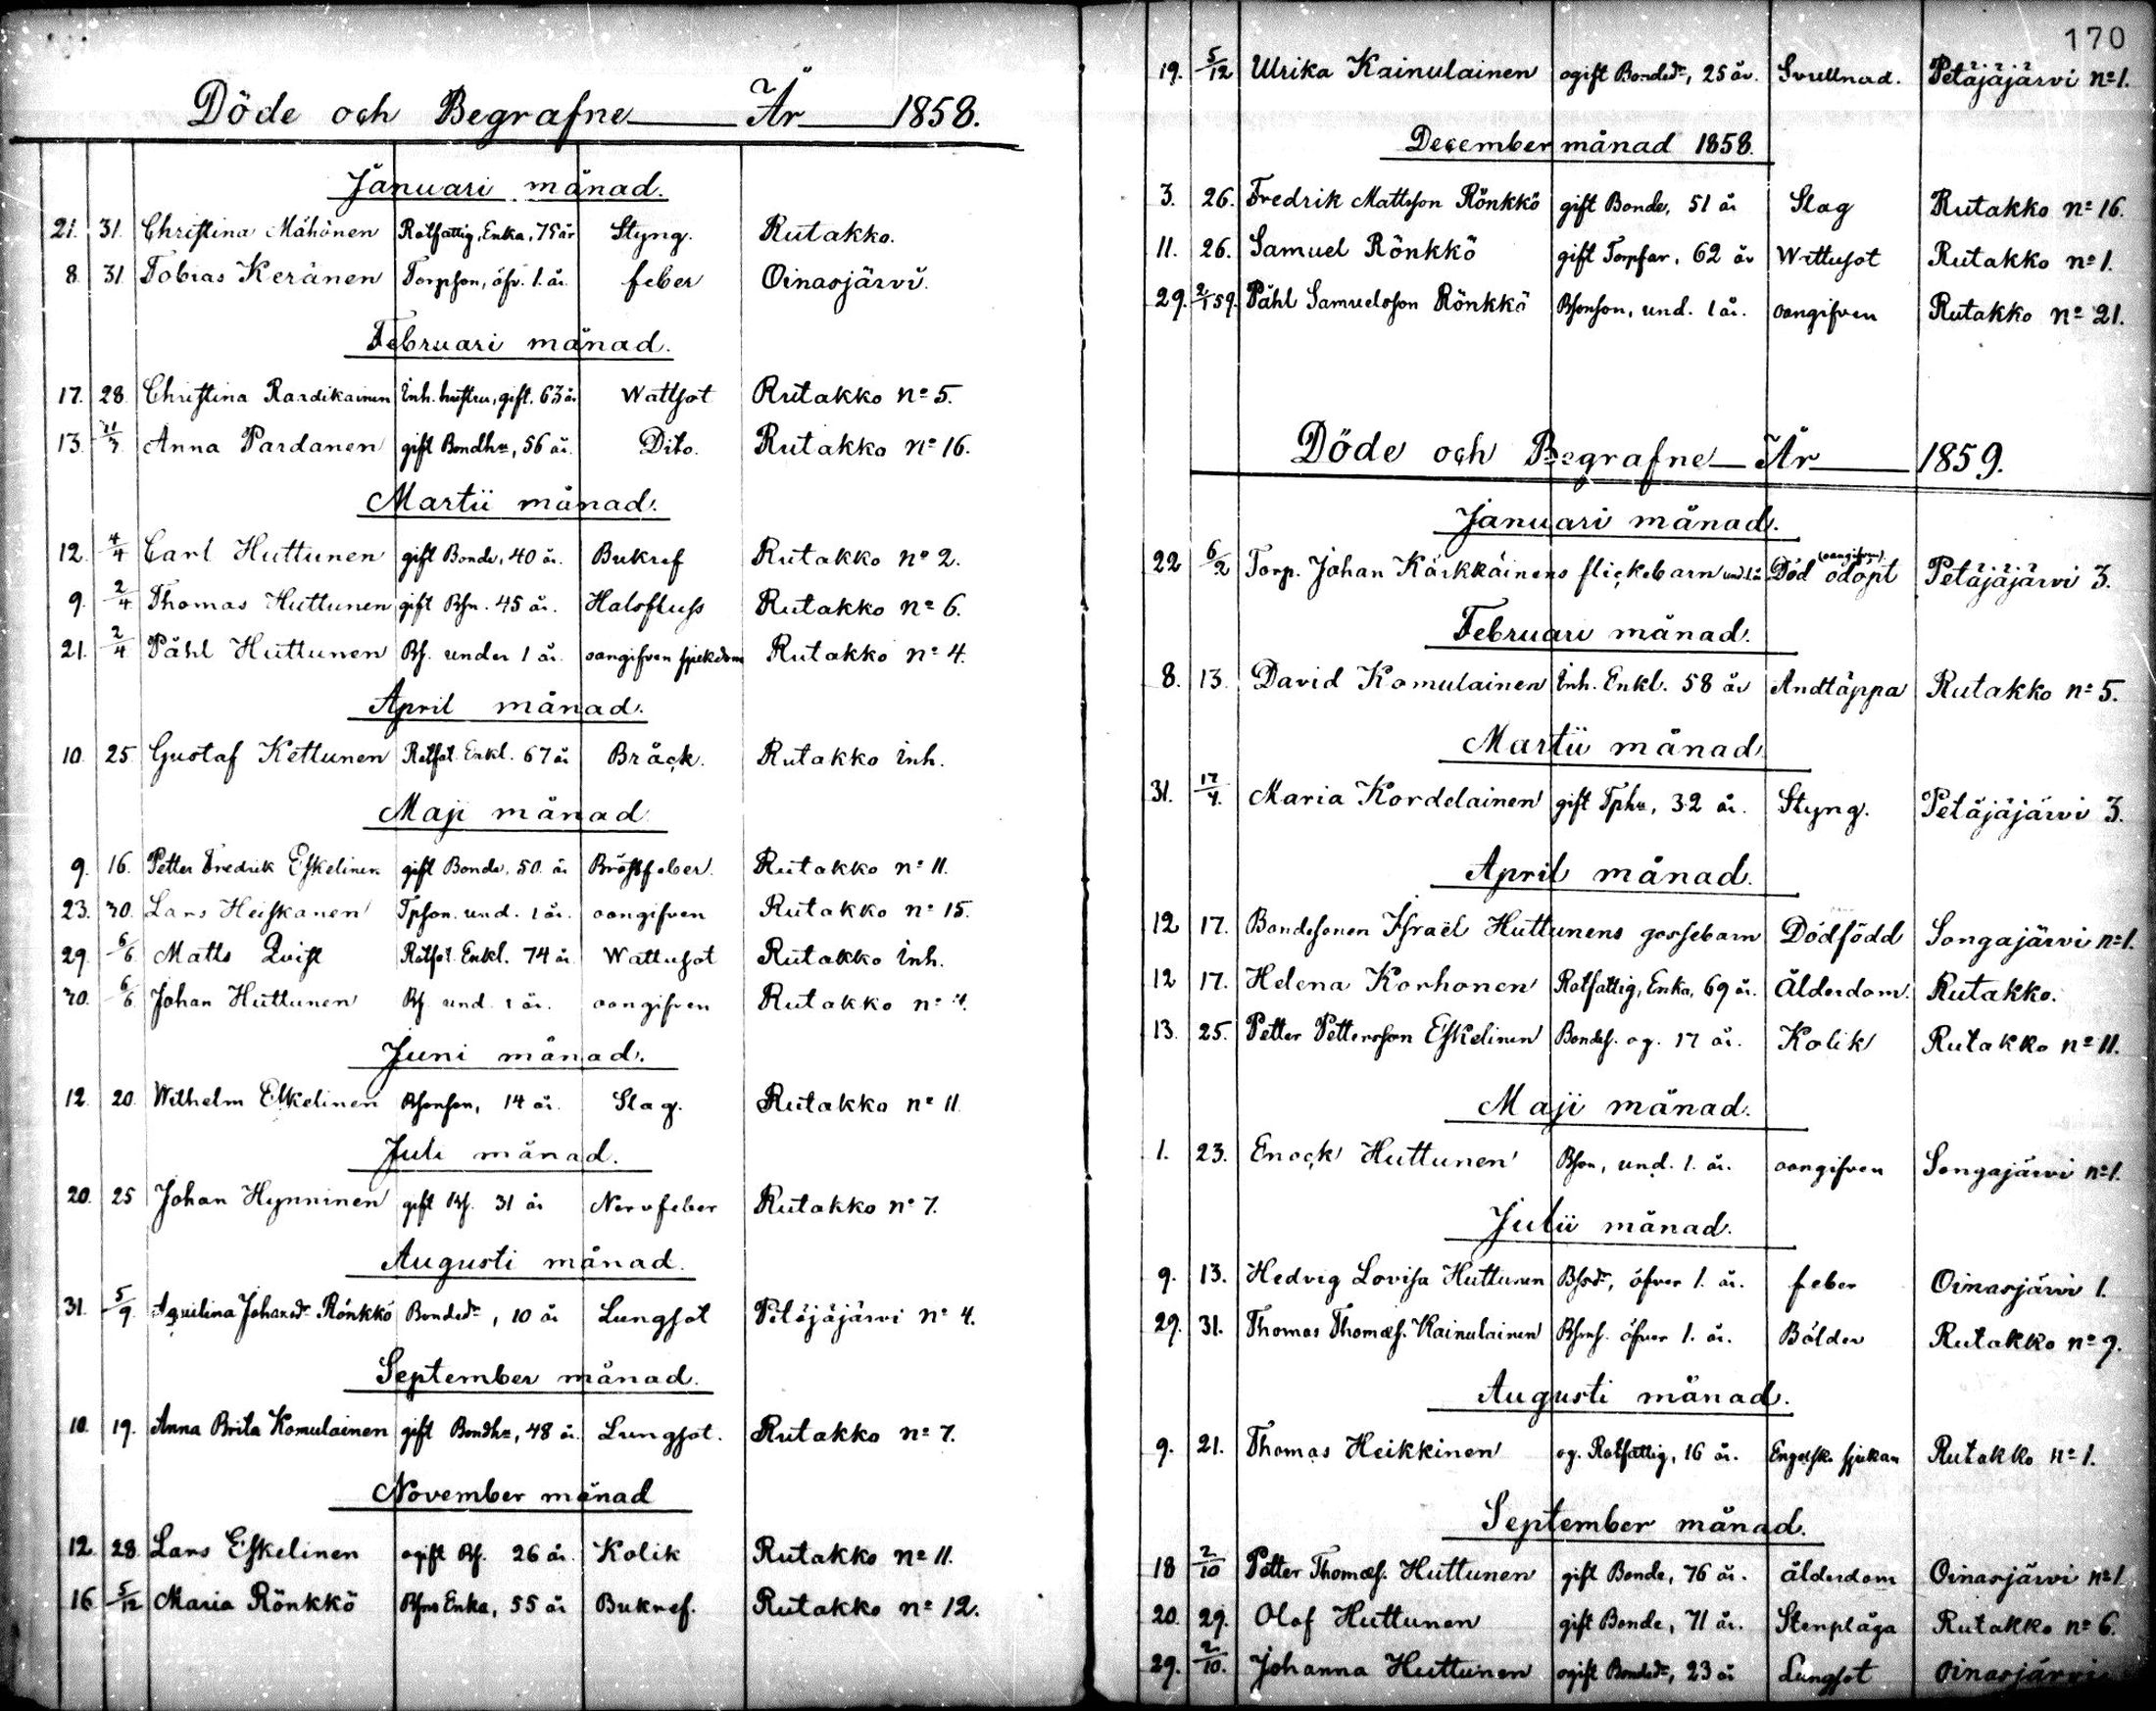 Döde och Begrafne År 1858.
Januari månad.
21. 31. Christina Mähönen Rotfattig, Enka, 75 år Styng. Rutakko.
8. 31. Tobias Keränen Torpson, öfv. 1. år. feber Oinasjärvi.
Februari månad.
17. 28. Christina Raadikainen Inh. hustru, gift. 63 år Wattsot Rutakko no 5.
13. Anna Pardanen gift Bondhu, 56 år. Dito. Rutakko no 16.
Martii månad.
12. 4/4 Carl Huttunen gift Bonde, 40 år. Bukref Rutakko no 2.
9. 2/4 Thomas Huttunen gift Bsn. 45 år. Halsfluss Rutakko no 6.
21. 2/4 Påhl Huttunen Bs. under 1 år. oangifven sjukdom Rutakko no 4.
April månad.
10. 25. Gustaf Kettunen Rotfat. Enkl. 67 år Bråck. Rutakko inh.
Maji månad
9. 16. Petter Fredrik Eskelinen gift Bonde, 50. år Bröstfeber. Rutakko no 11.
23. 30. Lars Heiskanen Tpson. und. 1 år. oangifven Rutakko no 15.
29. 6/6 Matts Qvist Rotfat. Enkl. 74 år Wattusot Rutakko inh.
30. 6/6 Johan Huttunen Bs. und. 1 år. oangifven Rutakko no 4.
Juni månad.
12. 20. Wilhelm Eskelinen Bsonson, 14 år. Slag. Rutakko no 11.
Juli månad.
20. 25 Johan Hynninen gift Bs. 31 år Nervfeber Rutakko no 7.
Augusti månad.
31. 5/9 Aqvilina Johansdr Rönkkö Bondedr, 10 år Lungsot Petäjäjärvi no 4.
September månad.
10. 19. Anna Brita Komulainen gift Bondhu, 48 år. Lungsot. Rutakko no 7.
November månad
12. 28. Lars Eskelinen ogift Bs. 26 år. Kolik Rutakko no 11.
16 5/12 Maria Rönkkö Bsns Enka, 55 år Bukref. Rutakko no 12.
170
19. 5/12 Ulrika Kainulainen ogift Bondedr, 25 år. Svullnad. Petäjäjärvi no 1.
December månad 1858.
3. 26. Fredrik Mattsson Rönkkö gift Bonde, 51 år Slag Rutakko no 16.
11. 26. Samuel Rönkkö gift Torpfar, 62 år Wattusot Rutakko no 1.
29. 2/1 59. Påhl Samuelsson Rönkkö Bsonson, und. 1 år. oangifven Rutakko no 21.
Döde och Begrafne År 1859.
Januari månad.
22 6/2 Torp. Johan Kärkkäinens flickebarn und. 1 år Död odöpt (oangifven) Petäjäjärvi 3.
Februari månad.
8. 13. David Komulainen Inh. Enkl. 58 år Andtäppa Rutakko no 5.
Martii månad
31. 17/4. Maria Kordelainen gift Tphu, 32 år. Styng. Petäjäjärvi 3.
April månad.
12 17. Bondesonen Israël Huttunens gossebarn Dödfödd Songajärvi no 1.
12 17. Helena Korhonen Rotfattig, Enka, 69 år. Ålderdom. Rutakko.
13. 25. Petter Pettersson Eskelinen Bondes. og. 17 år. Kolik Rutakko no 11.
Maji månad.
1. 23. Enock Huttunen Bson, und. 1. år. oangifven Songajärvi no 1.
Julii månad.
9. 13. Hedvig Lovisa Huttunen Bsdr, öfver 1. år. feber Oinasjärvi 1.
29. 31. Thomas Thomæs. Kainulainen Bsns. öfver 1. år. Bölder Rutakko no 9.
Augusti månad.
9. 21. Thomas Heikkinen og. Rotfattig, 16 år. Engelsk. sjukan Rutakko no 1.
September månad.
18 2/10 Petter Thomæs. Huttunen gift Bonde, 76 år. ålderdom Oinasjärvi no 1
20. 29. Olof Huttunen gift Bonde, 71 år. Stenplåga Rutakko no 6.
29. 2/10. Johanna Huttunen ogift Bondedr, 23 år Lungsot Oinasjärvi